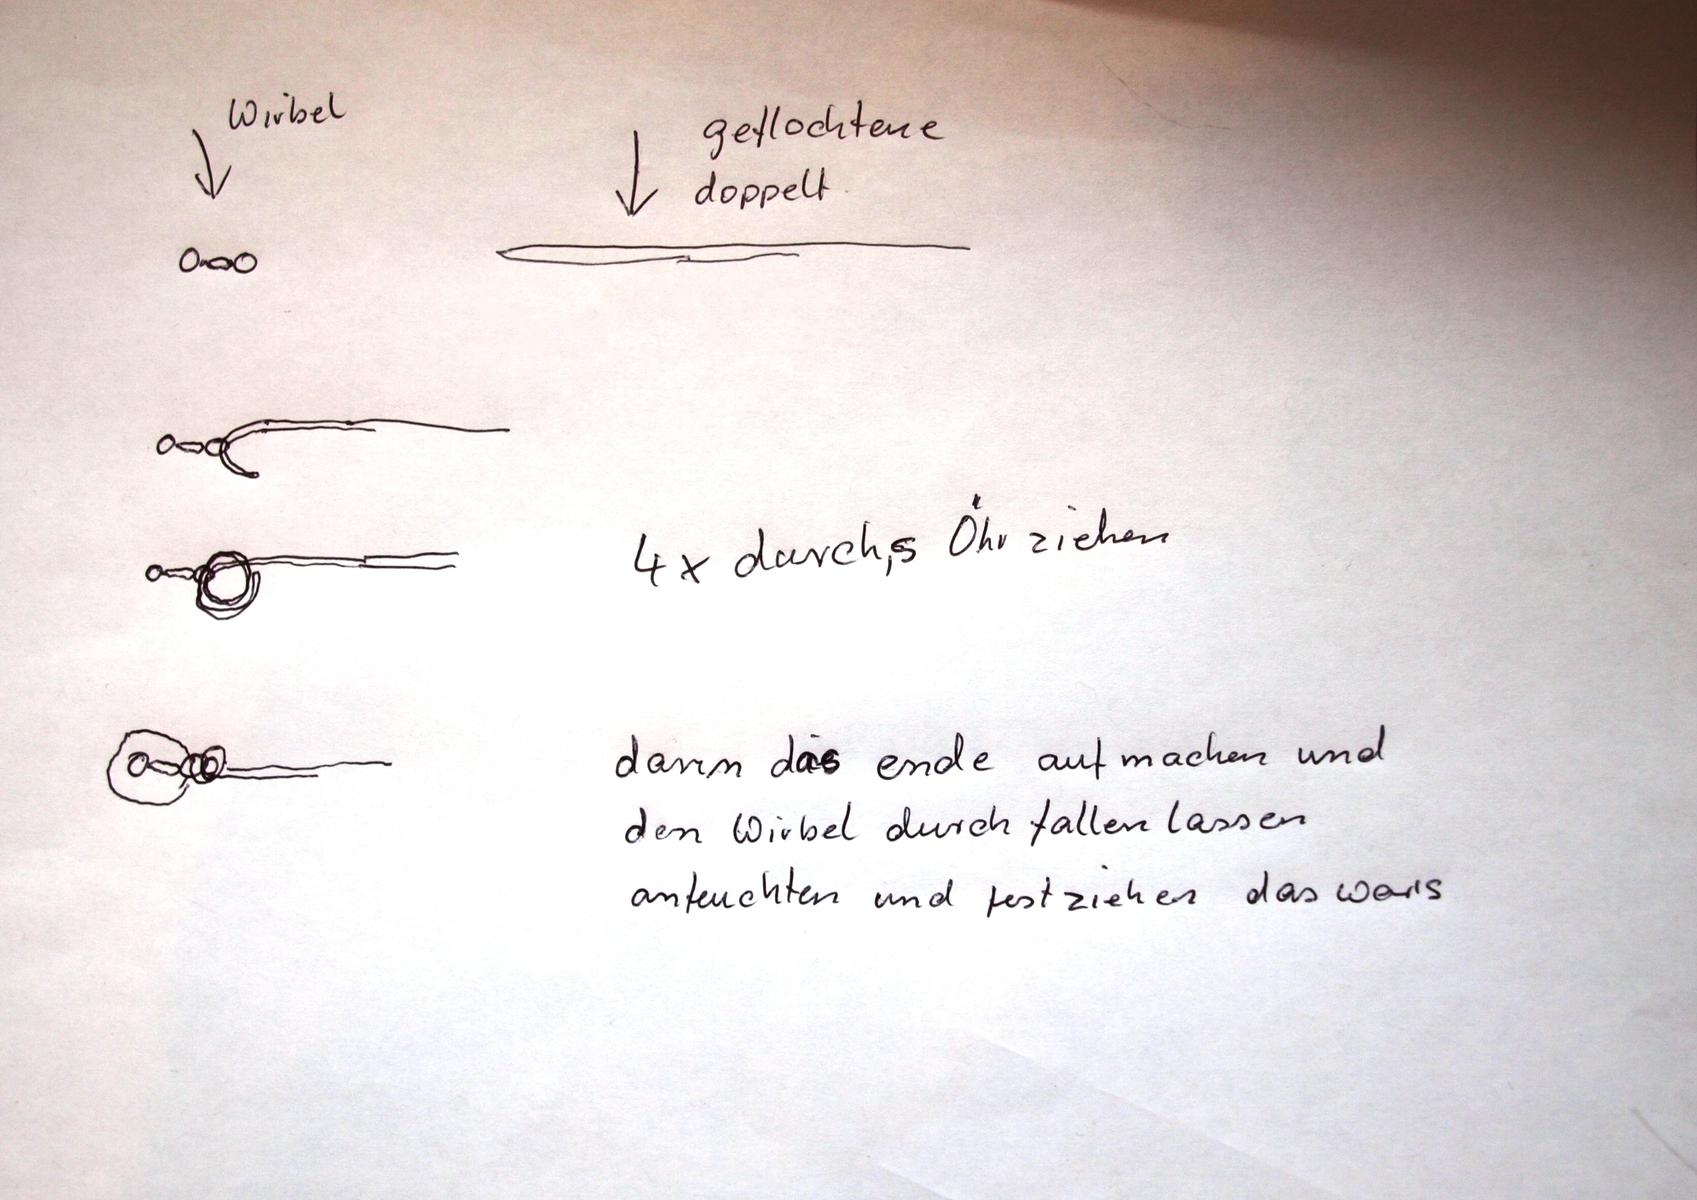 Wirbel
geflochtene
doppelt
4x durch,s Öhr ziehen
dann das ende aufmachen und
den Wirbel durch fallen lassen
anfeuchten und festziehen das wars